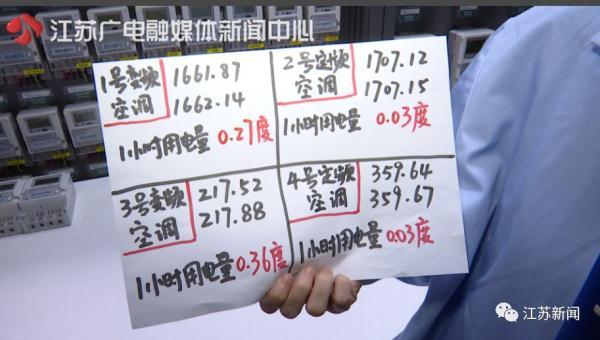 江苏广电融媒体新闻中心
1号变频
空调
1661.87
1662.14
1小时用电量 0.27度
2号定频
空调
1707.12
1707.15
1小时用电量 0.03度
3号变频
空调
217.52
217.88
1小时用电量 0.36度
4号定频
空调
359.64
359.67
1小时用电量 0.03度
江苏新闻